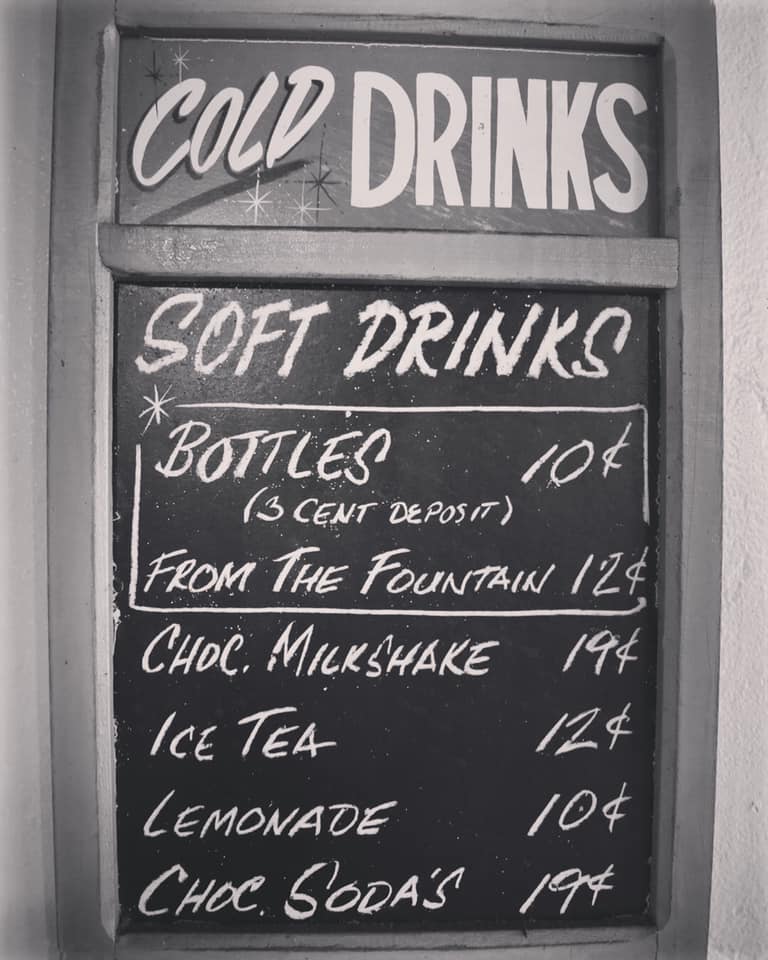 COLD DRINKS
SOFT DRINKS
BOTTLES 10¢
(3 CENT DEPOSIT)
FROM THE FOUNTAIN 12¢
CHOC. MILKSHAKE 19¢
ICE TEA 12¢
LEMONADE 10¢
CHOC. SODA'S 19¢